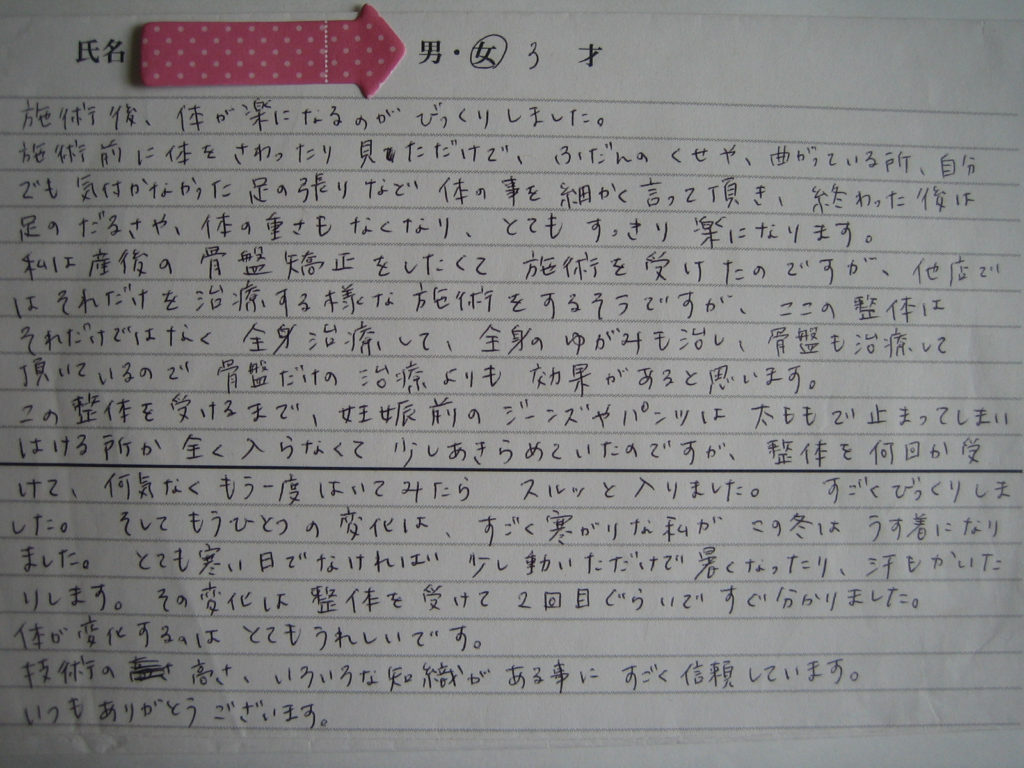 氏名 男・女 3 才
施術後、体が楽になるのがびっくりしました。
施術前に体をさわったり見ただけで、ふだんのくせや、曲がっている所、自分
でも気付かなかった足の張りなど体の事を細かく言って頂き、終わった後は
足のだるさや、体の重さもなくなり、とてもすっきり楽になります。
私は産後の骨盤矯正をしたくて施術を受けたのですが、他店で
はそれだけを治療する様な施術をするそうですが、ここの整体は
それだけではなく全身治療して、全身のゆがみも治し、骨盤も治療して
頂いているので骨盤だけの治療よりも効果があると思います。
この整体を受けるまで、妊娠前のジーンズやパンツは太ももで止まってしまい
はける所か全く入らなくて少しあきらめていたのですが、整体を何回か受
けて、何気なくもう一度はいてみたらスルッと入りました。 すごくびっくりしま
した。 そしてもうひとつの変化は、すごく寒がりな私がこの冬はうす着になり
ました。 とても寒い日でなければ少し動いただけで暑くなったり、汗もかいた
りします。その変化は整体を受けて2回目ぐらいですぐ分かりました。
体が変化するのはとてもうれしいです。
技術の高さ、いろいろな知識がある事にすごく信頼しています。
いつもありがとうございます。